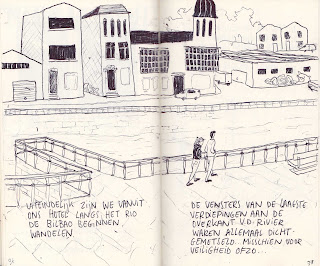 UITEINDELIJK ZIJN WE VANUIT
ONS HOTEL LANGS HET RIO
DE BILBAO BEGINNEN
WANDELEN.
DE VENSTERS VAN DE LAATSTE
VERDIEPINGEN AAN DE
OVERKANT V.D. RIVIER
WAREN ALLEMAAL DICHT-
GEMETSELD... MISSCHIEN VOOR
VEILIGHEID OFZO...